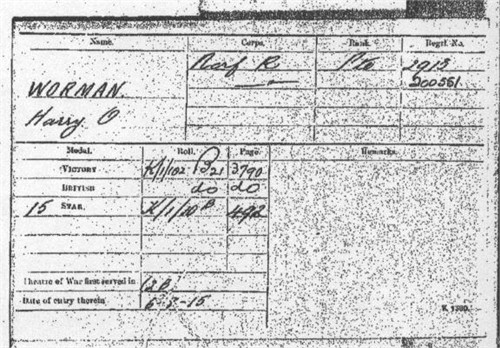 Name. Corps. Rank. Regtl. No.
WORMAN. R. Pte 2913
Harry O 200561
Medal. Roll. Page. Remarks.
VICTORY K/1/102 B21 3790
BRITISH do do
15 STAR. K/1/10 B 492
Theatre of War first served in
Date of entry therein 6-8-15
K 1380.